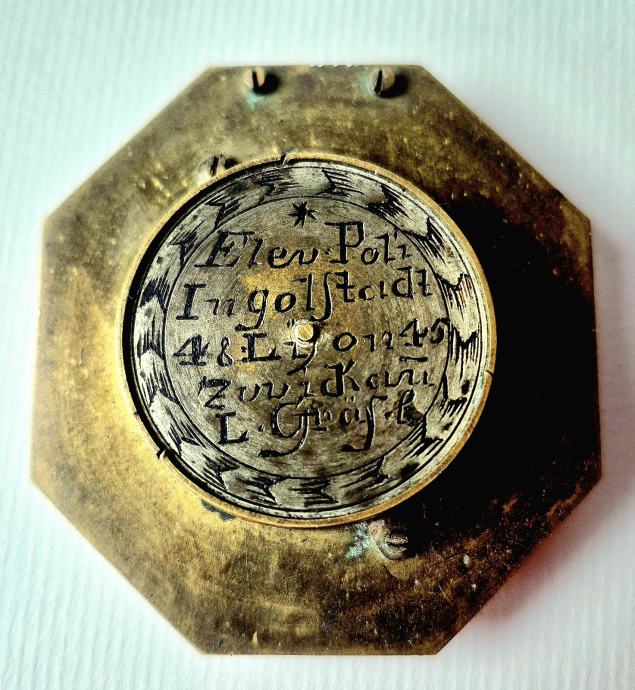 Elev. Poli
Ingolstadt
48. Lÿon 45
Zwickau
L. Gräsl